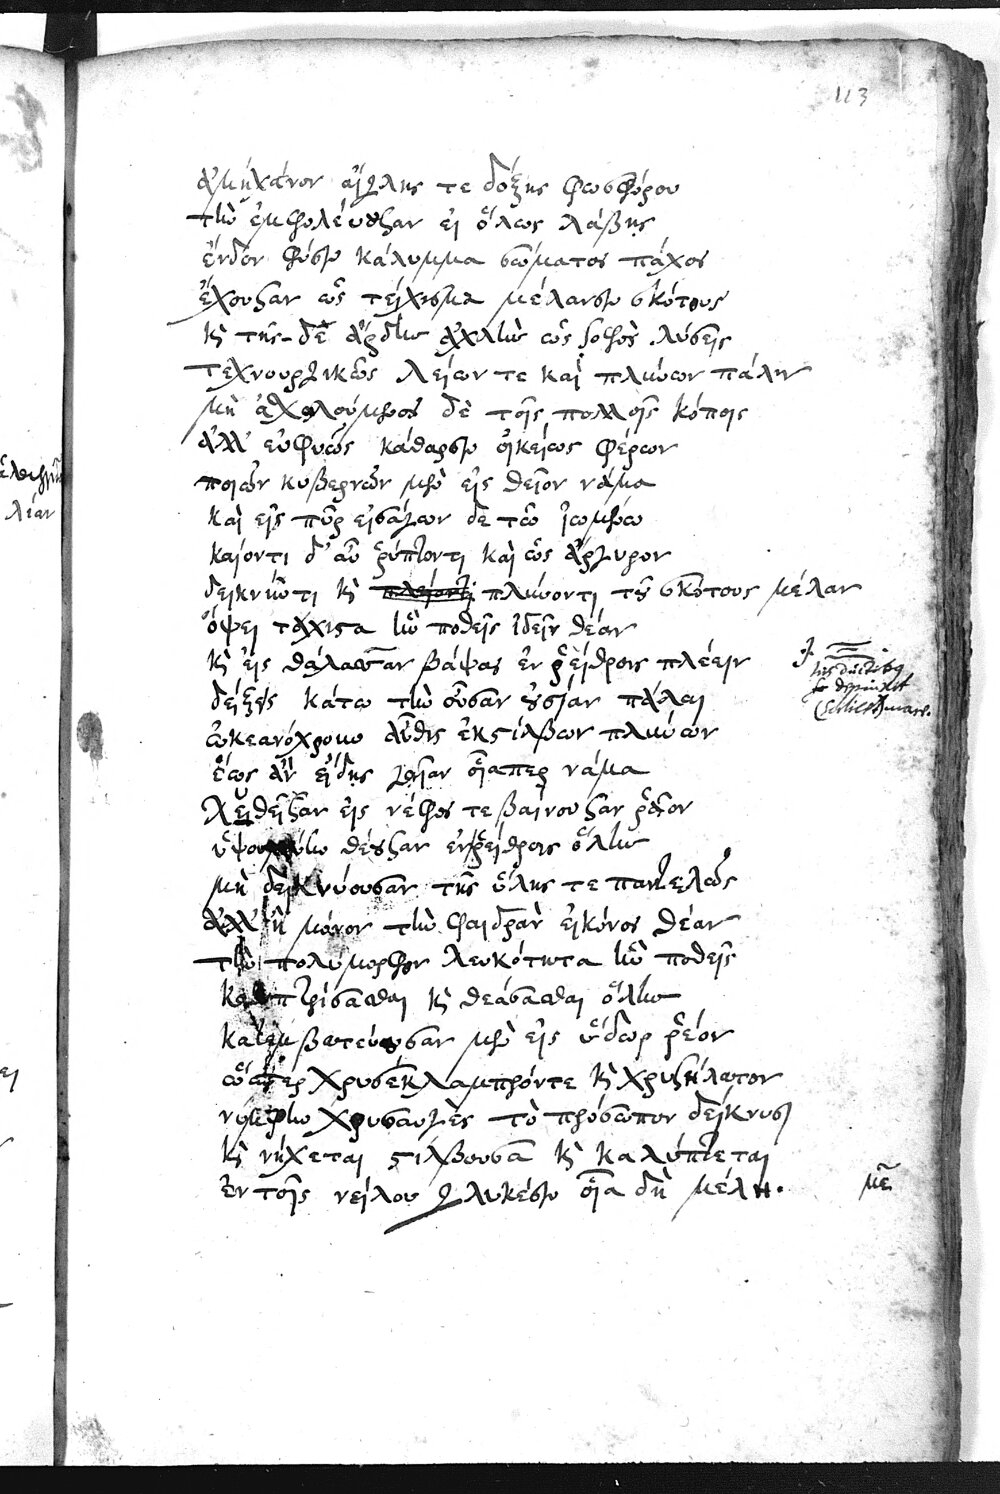 113
ἀμήχανον αἴγλης τε δόξης φωσφόρου
τὴν ἐμφολεύουσαν εἰ ὅλως λάβης
ἔνδον φύσιν κάλυμμα σώματος πάχος
ἔχουσαν ὡς τείχισμα μέλανσιν σκότους
καὶ τῆς δὲ ἄρδην ἀχλὺν ὡς σοφὸς λύσεις
τεχνουργικῶς λείων τε καὶ πλύνων πάλιν
μὴ ἀχθούμενος δὲ τοῖς πολλοῖς κόποις
ἀλλ' εὐφυῶς κάθαρσιν οἰκείως φέρων
ποιῶν κυβερνῶν μὲν εἰς θεῖον νάμα
καὶ εἰς πῦρ εἰσάγων δὲ τῶ
καίοντι δ' αὖ ῥύπτοντι καὶ ὡς ἄργυρον
δεικνύντι καὶ πλύνοντι τοῦ σκότους μέλαν
ὄψει τάχιστα ἣν ποθεῖς ἰδεῖν θέαν
καὶ εἰς θάλασσαν βάψας ἐν ῥείθροις πλέειν
δείξεις κάτω τὴν οὖσαν οὐσίαν πάλαι
ὠκεανόχροιον αὖθις ἐκστίλβων πλύνων
ἕως ἂν εἴδης οἷαπερ νάμα
λειωθεῖσαν εἰς νέφος τε βαίνουσαν ῥᾶον
θέουσαν ἐν ῥείθροις ὅλην
μὴ δεικνύουσαν τῆς ὕλης τε παντελῶς
ἀλλ' ἢ μόνον τὴν φαιδρὰν εἰκόνος θέαν
τὴν πολύμορφον λευκότητα ἣν ποθεῖς
κατοπτρίσασθαι καὶ θεάσασθαι ὅλην
καὶ ἐμβατεύουσαν μὲν εἰς ὕδωρ ῥέον
ὥσπερ χρυσέκλαμπρόν τε καὶ χρυσήλατον
νύμφην χρυσαυγὲς τὸ πρόσωπον δείκνυσι
καὶ νήχεται στίλβουσα καὶ καλύπτεται
ἐν τοῖς νείλου γλυκέσιν οἷα δὴ μέλη.